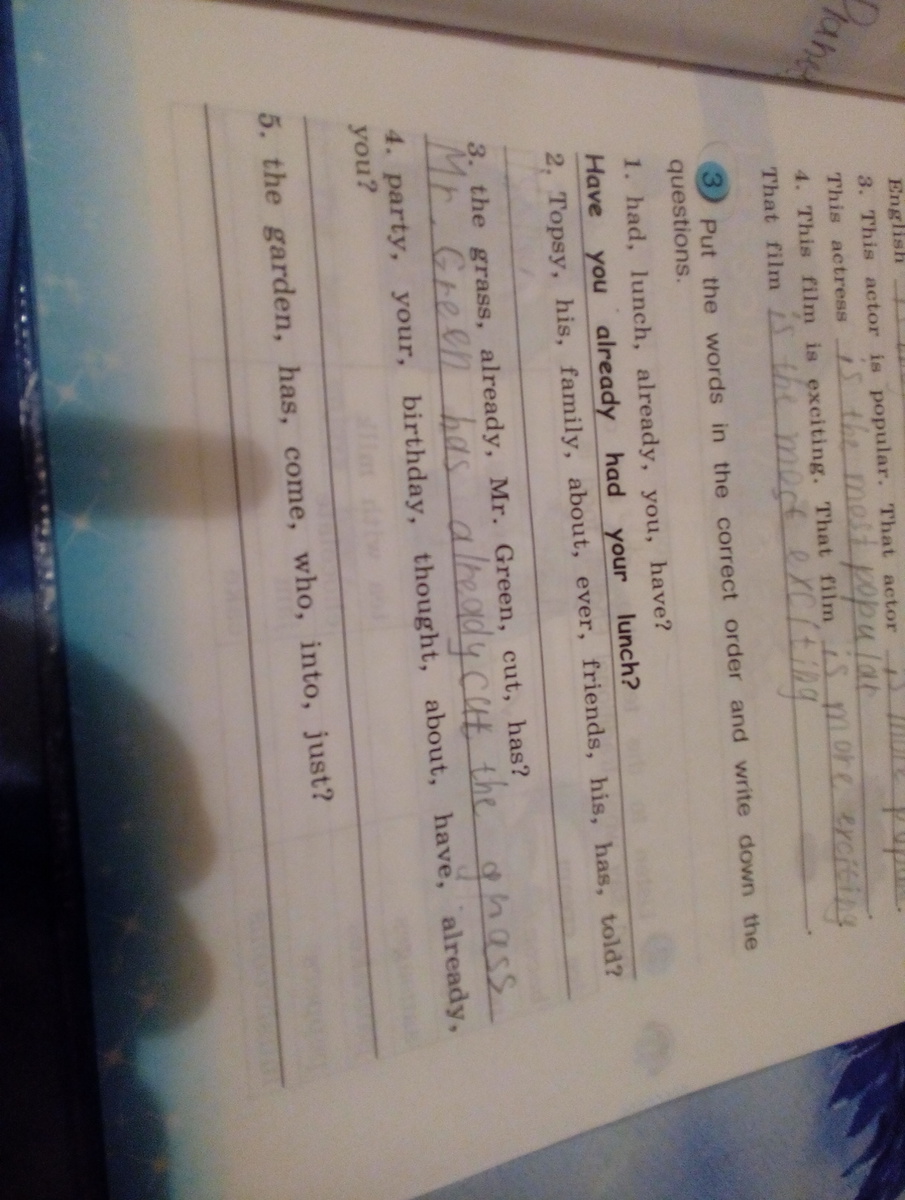 English
3. This actor is popular. That actor is more
This actress is the most popular.
4. This film is exciting. That film is more exciting.
That film is the most exciting
3 Put the words in the correct order and write down the
questions.
1. had, lunch, already, you, have?
Have you already had your lunch?
2. Topsy, his, family, about, ever, friends, his, has, told?
3. the grass, already, Mr. Green, cut, has?
Mr. Green has already cut the grass
4. party, your, birthday, thought, about, have, already,
you?
5. the garden, has, come, who, into, just?